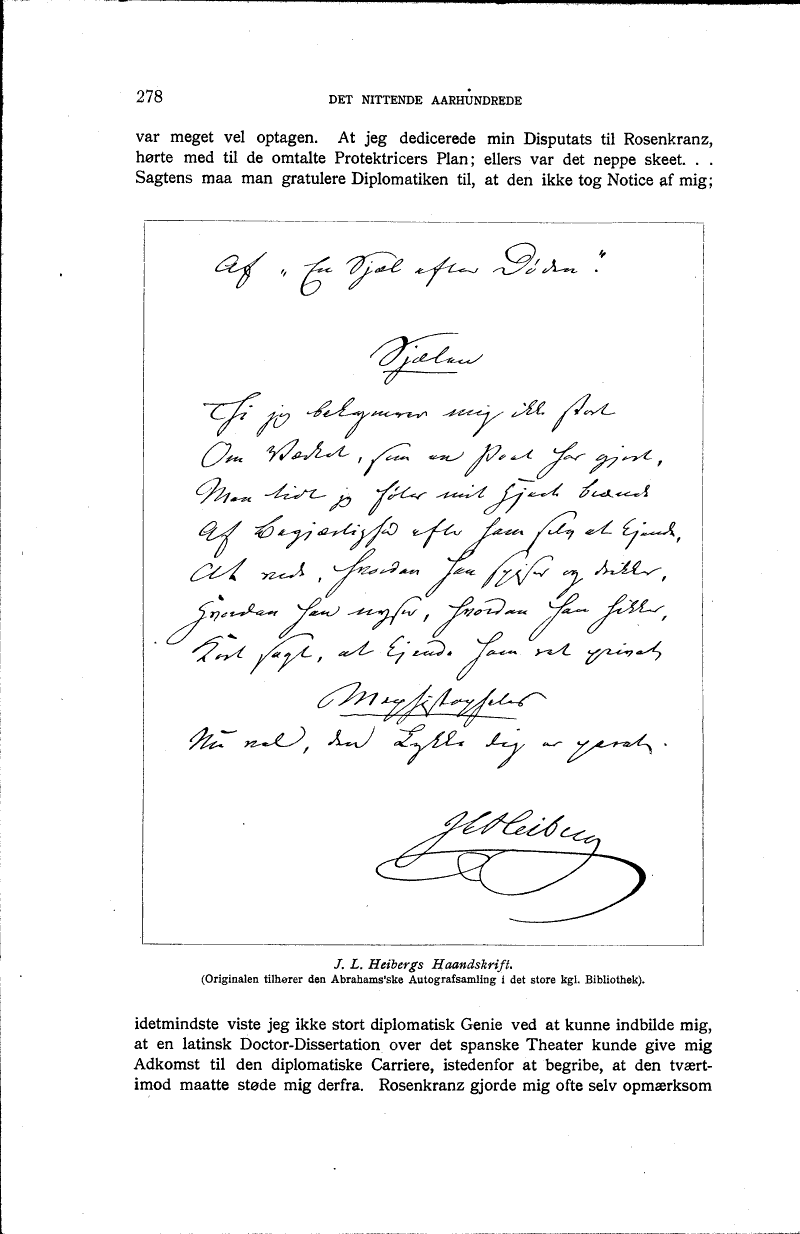 278
DET NITTENDE AARHUNDREDE
var meget vel optagen. At jeg dedicerede min Disputats til Rosenkranz,
hørte med til de omtalte Protektricers Plan; ellers var det neppe skeet. . .
Sagtens maa man gratulere Diplomatiken til, at den ikke tog Notice af mig;
Af „En Sjæl efter Døden".
Sjælen
Thi jeg bekymrer mig ikke stort
Om Værket, som en Poet har gjort,
Men tidt jeg føler mit Hjerte brænde
Af Begjærlighed efter ham selv at kjende,
At vide, hvordan han spiser og drikker,
Hvordan han nyser, hvordan han hikker,
Kort sagt, at kjende ham ret privat
Mephistopheles
Nu vel, den Lykke dig er parat.
JLHeiberg
J. L. Heibergs Haandskrift.
(Originalen tilhører den Abrahams'ske Autografsamling i det store kgl. Bibliothek).
idetmindste viste jeg ikke stort diplomatisk Genie ved at kunne indbilde mig,
at en latinsk Doctor-Dissertation over det spanske Theater kunde give mig
Adkomst til den diplomatiske Carriere, istedenfor at begribe, at den tvært-
imod maatte støde mig derfra. Rosenkranz gjorde mig ofte selv opmærksom